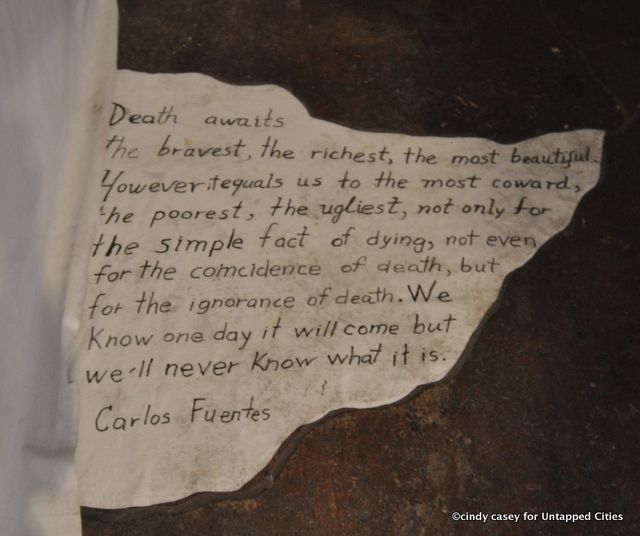 Death awaits
the bravest, the richest, the most beautiful.
However it equals us to the most coward,
the poorest, the ugliest, not only for
the simple fact of dying, not even
for the coincidence of death, but
for the ignorance of death. We
Know one day it will come but
we'll never Know what it is.
Carlos Fuentes
©cindy casey for Untapped Cities